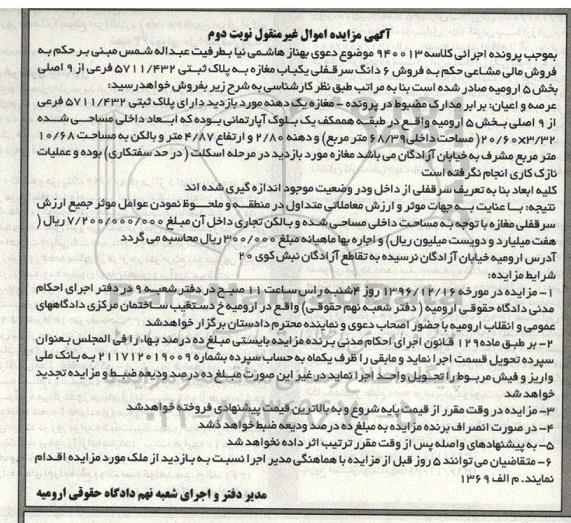 آگهی مزایده اموال غیرمنقول نوبت دوم
بموجب پرونده اجرائی کلاسه ۹۴۰۰۱۳ موضوع دعوی بهناز هاشمی نیا بطرفیت عبداله شمس مبنی بر حکم به
فروش مالی مشاعی حکم به فروش ۶ دانگ سرقفلی یکباب مغازه به پلاک ثبتی ۵۷۱۱/۴۳۲ فرعی از ۹ اصلی
بخش ۵ ارومیه صادر شده است بنا به مراتب طبق نظر کارشناسی به شرح زیر بفروش خواهد رسید:
عرصه و اعیان: برابر مدارک مضبوط در پرونده - مغازه یک دهنه مورد بازدید دارای پلاک ثبتی ۵۷۱۱/۴۳۲ فرعی
از ۹ اصلی بخش ۵ ارومیه واقع در طبقه همکف یک بلوک آپارتمانی بوده که ابعاد داخلی مساحی شده
۲۰/۶۰×۳/۳۲ (مساحت داخلی ۶۸/۳۹ متر مربع) و دهنه ۲/۸۰ و ارتفاع ۴/۸۷ متر و بالکن به مساحت ۱۰/۶۸
متر مربع مشرف به خیابان آزادگان می باشد مغازه مورد بازدید در مرحله اسکلت (در حد سفتکاری) بوده و عملیات
نازک کاری انجام نگرفته است
کلیه ابعاد بنا به تعریف سرقفلی از داخل و در وضعیت موجود اندازه گیری شده اند
نتیجه: با عنایت به جهات موثر و ارزش معاملاتی متداول در منطقه و ملحوظ نمودن عوامل موثر جمیع ارزش
سرقفلی مغازه با توجه به مساحت داخلی مساحی شده و بالکن تجاری داخل آن مبلغ ۷/۲۰۰/۰۰۰/۰۰۰ ریال (
هفت میلیارد و دویست میلیون ریال) و اجاره بها ماهیانه مبلغ ۳۰۰/۰۰۰ ریال محاسبه می گردد
آدرس ارومیه خیابان آزادگان نرسیده به تقاطع آزادگان نبش کوی ۲۰
شرایط مزایده:
۱- مزایده در مورخه ۱۳۹۶/۱۲/۱۶ روز ۴شنبه راس ساعت ۱۱ صبح در دفتر شعبه ۹ در دفتر اجرای احکام
مدنی دادگاه حقوقی ارومیه (دفتر شعبه نهم حقوقی) واقع در ارومیه خ دستغیب ساختمان مرکزی دادگاههای
عمومی و انقلاب ارومیه با حضور اصحاب دعوی و نماینده محترم دادستان برگزار خواهد شد
۲- بر طبق ماده ۱۲۹ قانون اجرای احکام مدنی برنده مزایده بایستی مبلغ ده درصد بها را فی المجلس بعنوان
سپرده تحویل قسمت اجرا نماید و مابقی را ظرف یکماه به حساب سپرده بشماره ۲۱۱۷۱۲۰۱۹۰۰۹ به بانک ملی
واریز و فیش مربوط را تحویل واحد اجرا نماید در غیر این صورت مبلغ ده درصد ودیعه ضبط و مزایده تجدید
خواهد شد
۳- مزایده در وقت مقرر از قیمت پایه شروع و به بالاترین قیمت پیشنهادی فروخته خواهد شد
۴- در صورت انصراف برنده مزایده به مبلغ ده درصد ودیعه ضبط خواهد شد
۵- به پیشنهادهای واصله پس از وقت مقرر ترتیب اثر داده نخواهد شد
۶- متقاضیان می توانند ۵ روز قبل از مزایده با هماهنگی مدیر اجرا نسبت به بازدید از ملک مورد مزایده اقدام
نمایند. م الف ۱۳۶۹
مدیر دفتر و اجرای شعبه نهم دادگاه حقوقی ارومیه